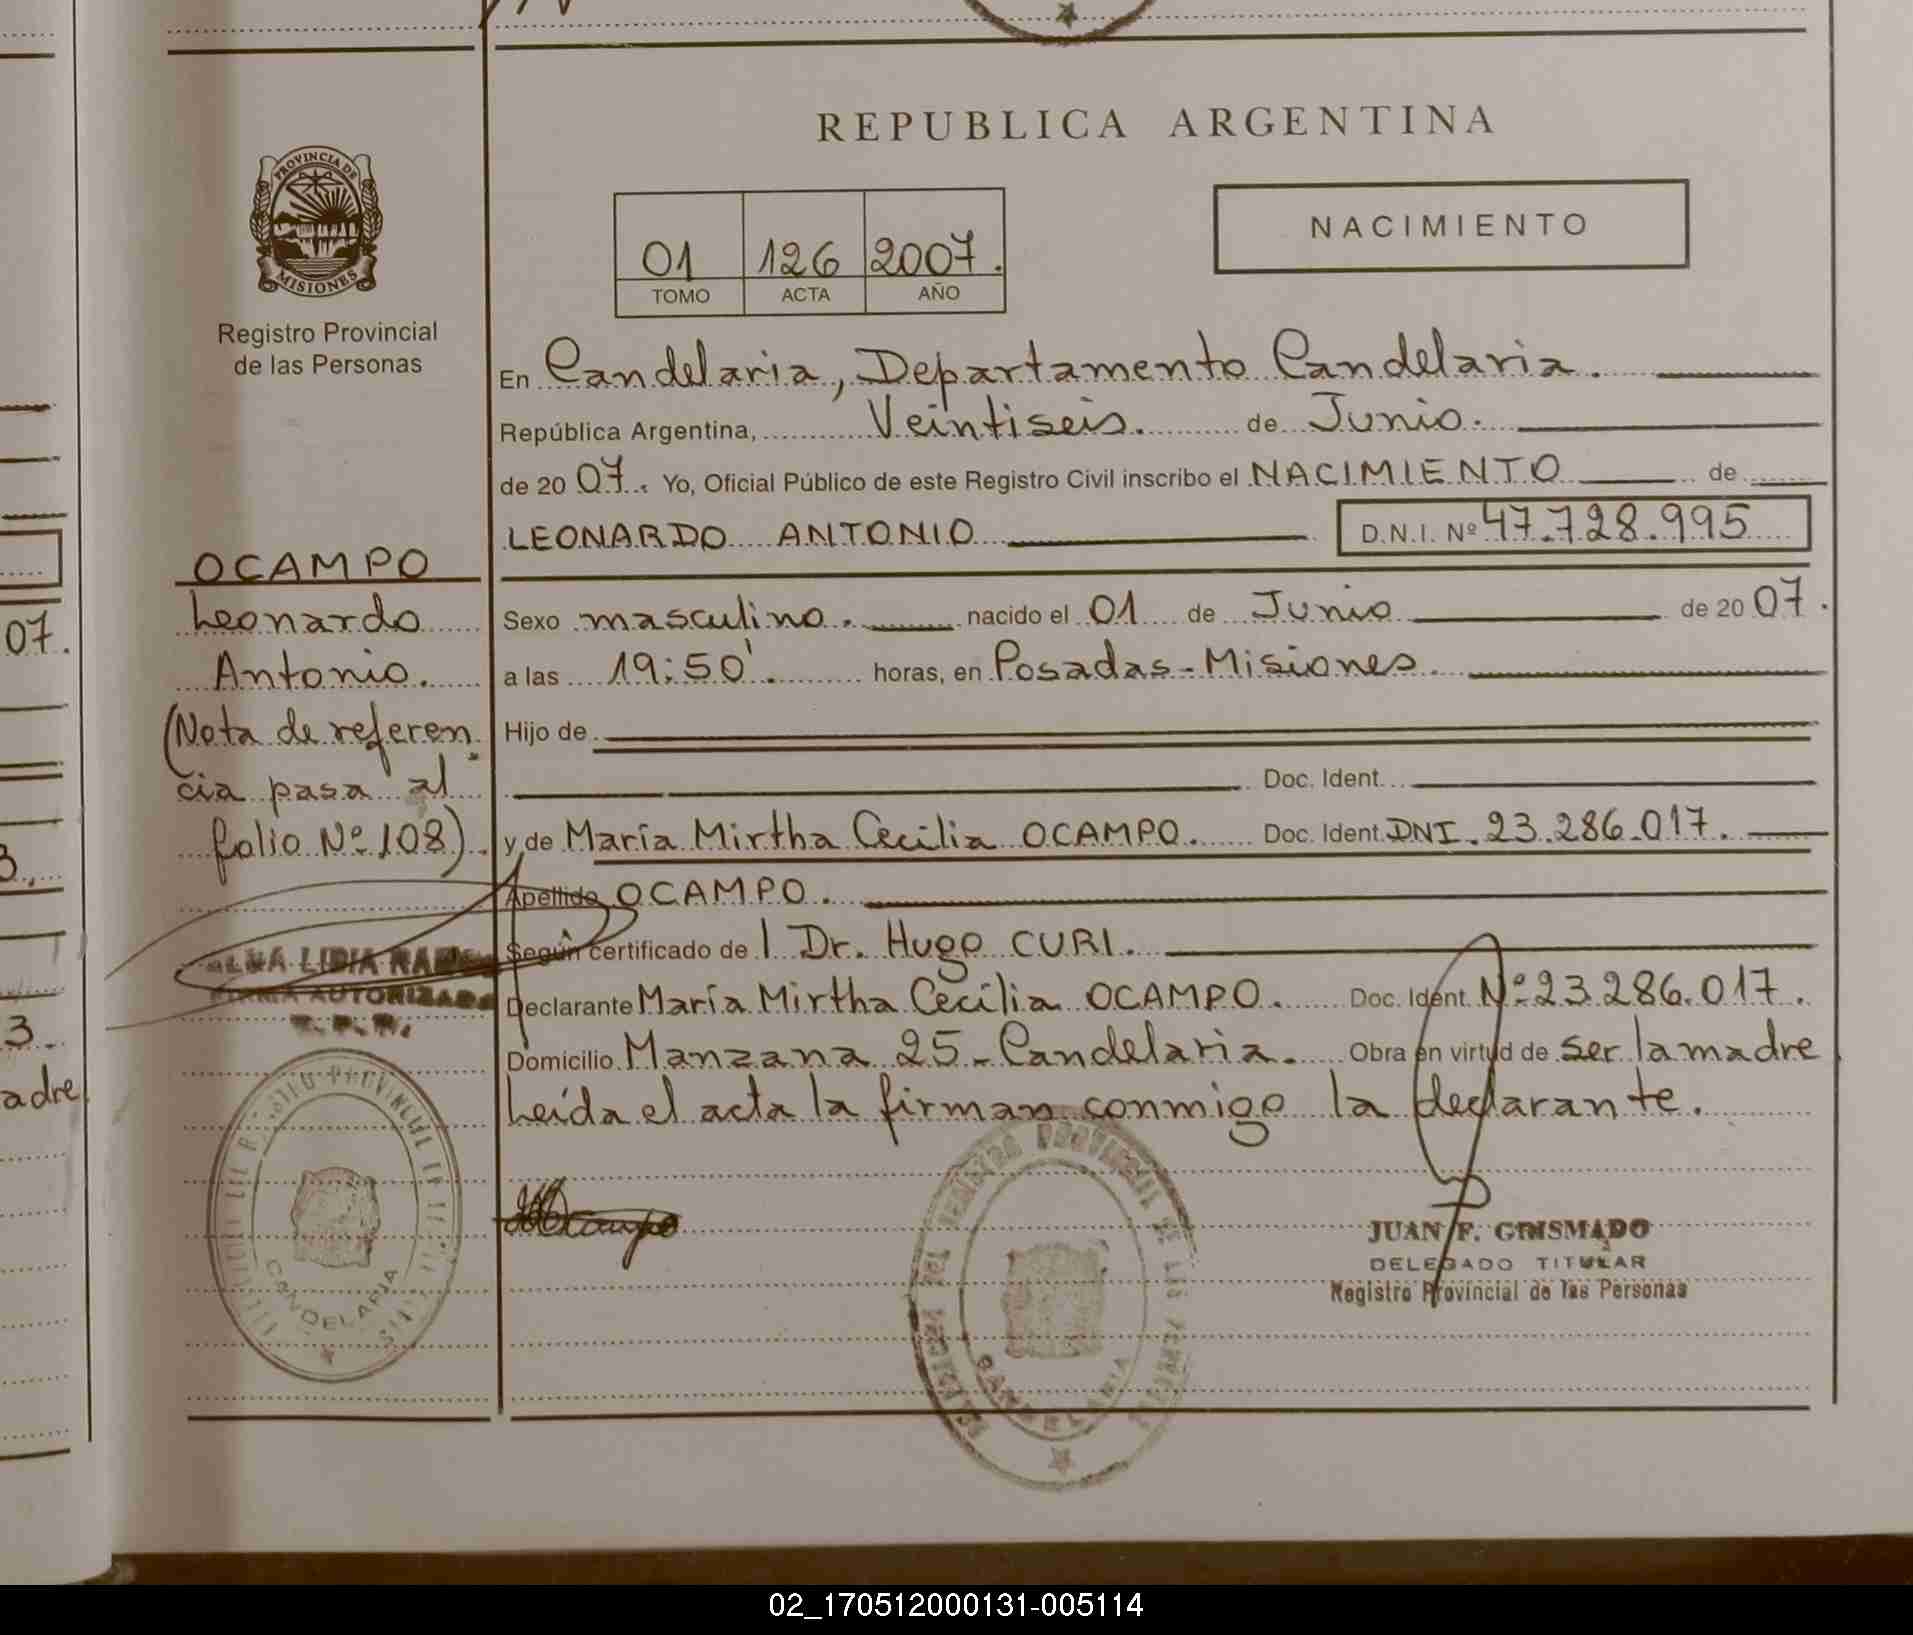 REPUBLICA ARGENTINA
PROVINCIA DE
MISIONES
Registro Provincial
de las Personas
NACIMIENTO
01 126 2007.
TOMO ACTA AÑO
En Candelaria, Departamento Candelaria.
República Argentina, Veintiseis. de Junio.
de 20 07. Yo, Oficial Público de este Registro Civil inscribo el NACIMIENTO de
LEONARDO ANTONIO D.N.I. Nº 47.728.995
OCAMPO
Leonardo
Antonio.
(Nota de referen
cia pasa al
folio Nº 108)
Sexo masculino. nacido el 01 de Junio de 20 07.
a las 19:50'. horas, en Posadas - Misiones.
Hijo de
Doc. Ident.
y de María Mirtha Cecilia OCAMPO. Doc. Ident. DNI. 23.286.017.
Apellido OCAMPO.
Según certificado de l Dr. Hugo CURI.
Declarante María Mirtha Cecilia OCAMPO. Doc. Ident. Nº 23.286.017.
Domicilio Manzana 25 - Candelaria. Obra en virtud de ser la madre
Leída el acta la firman conmigo la declarante.
LIDIA
FIRMA AUTORIZADA
CANDELARIA
Ocampo
REGISTRO PROVINCIAL DE LAS
CANDELARIA
JUAN F. GRISMADO
DELEGADO TITULAR
Registro Provincial de las Personas
07.
3.
adre
02_170512000131-005114